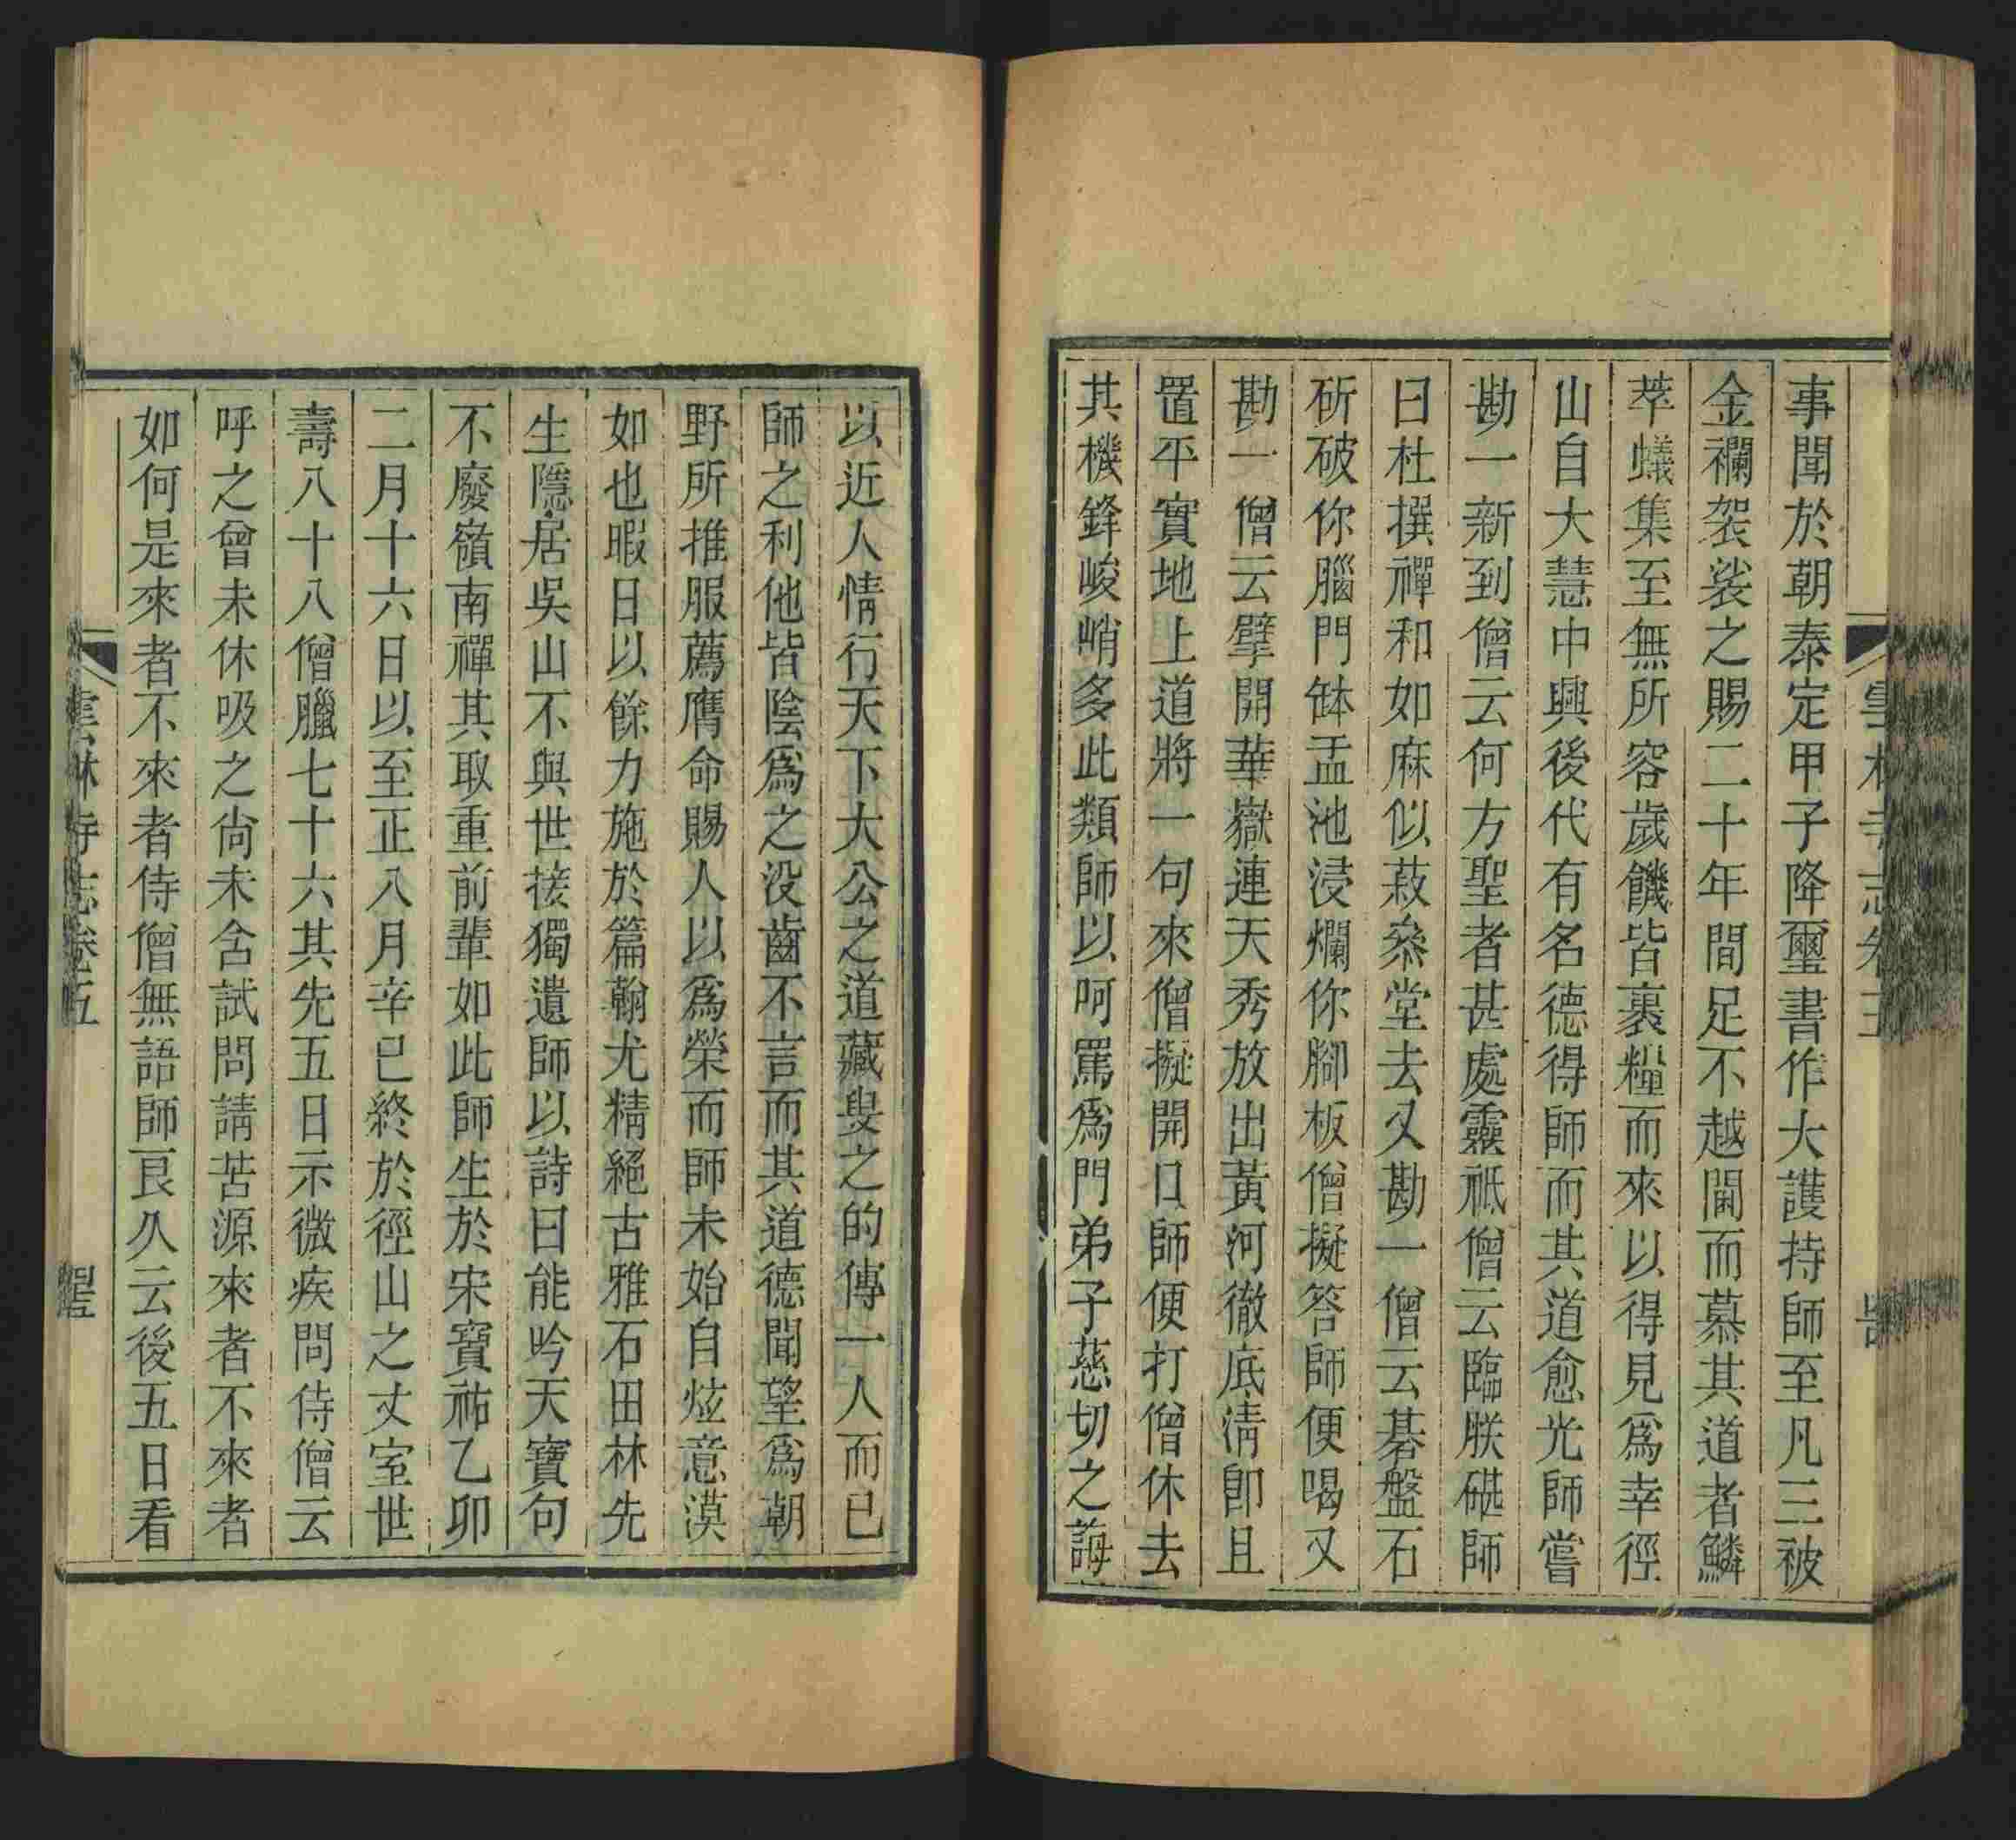 事聞於朝泰定甲子降璽書作大護持師至凡三被
金襴袈裟之賜二十年間足不越閫而慕其道者鱗
萃蟻集至無所容歲饑皆裹糧而來以得見爲幸徑
山自大慧中興後代有名德得師而其道愈光師嘗
勘一新到僧云何方聖者甚處靈祗僧云臨朕碪師
曰杜撰禪和如麻似菽叅堂去又勘一僧云碁盤石
斫破你腦門缽盂池浸爛你腳板僧擬答師便喝又
勘一僧云擘開華嶽連天秀放出黃河徹底淸卽且
置平實地上道將一句來僧擬開口師便打僧休去
其機鋒峻峭多此類師以呵罵爲門弟子慈切之誨
以近人情行天下大公之道藏叟之的傳一人而已
師之利他皆陰爲之没齒不言而其道德聞望爲朝
野所推服薦膺命賜人以爲榮而師未始自炫意漠
如也暇日以餘力施於篇翰尤精絕古雅石田林先
生隱居吳山不與世接獨遺師以詩曰能吟天寶句
不廢嶺南禪其取重前輩如此師生於宋寶祐乙卯
二月十六日以至正八月辛巳終於徑山之丈室世
壽八十八僧臘七十六其先五日示微疾問侍僧云
呼之曾未休吸之尙未舍試問請苦源來者不來者
如何是來者不來者侍僧無語師良久云後五日看
雲林寺志卷五